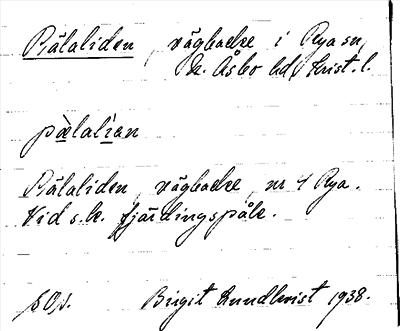 Pålaliden, vägbacke i Rya sn,
N. Åsbo hd, Krist. l.
pæ̀lalìan
Pålaliden, vägbacke, nr 4 Rya.
Vid s.k. fjärdingspåle.
s. Op. Birgit Lundkvist 1938.